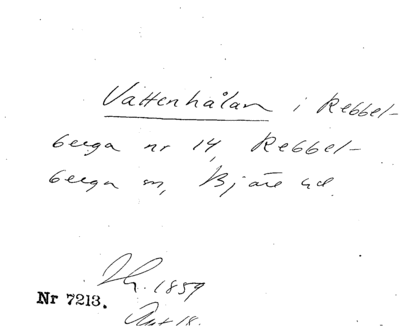 Vattenhålan i Rebbel-
berga nr 14, Rebbel-
berga sn, Bjäre hd.
1859
Nr 7213.